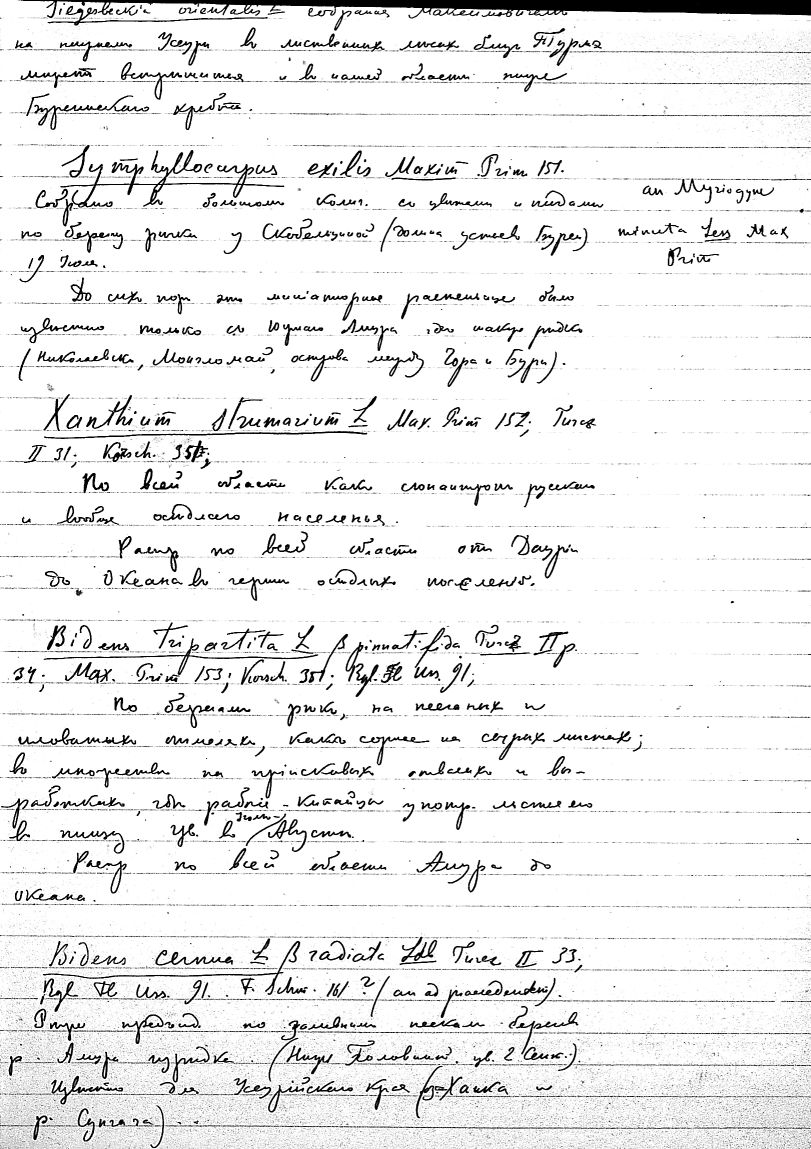 Siegesbeckia orientalis L собрана Максимовичем
на нижнем Уссури въ лиственных лесах близ Турмя
может встретится и в нашей области ниже
Буреинскаго хребта.
Symphyllocarpus exilis Maxim Prim 151.
Собрано въ большом колич. съ цветами и плодами
по берегу речки у Скобельциной (долина устьев Буреи)
19 Июля.
an Myriogyne
minuta Less Max
Prim
До сихъ пор это миниатюрное растеньице было
известно только съ Амура, где
(Николаевска, Монголмай, острова между Гора и Бури).
Xanthium strumarium L Max. Prim 152; Turcz
II 31; Korsch. 351;
По всей области какъ русскаго
и вообще оседлаго населенья.
Распр по всей области отъ Дауріи
до Океана въ черте оседлых поселеній.
Bidens tripartita L β pinnatifida Turcz II p.
34; Max. Prim 153; Korsch. 351; Rgl. Fl Uss. 91;
По берегам рек, на песчаных и
иловатыхъ отмеляхъ, какъ сорное на сырых местах;
въ множестве на пріисковых отвалах и вы-
работкахъ, где рабочіе-Китайцы употр. листъ его
в пищу. Цв. въ Июле-Августе.
Распр по всей области Амура до
Океана.
Bidens cernua L β radiata Ldb Turcz II 33;
Rgl Fl Uss. 91. F. Schm. 161? (an ad praecedentem).
предъид. по заливным пескам берегов
р. Амура изредка. (Ниже Половинной, цв. 2 Сент.).
Известно для Уссурійскаго края (Ханка и
р. Сунгача)...